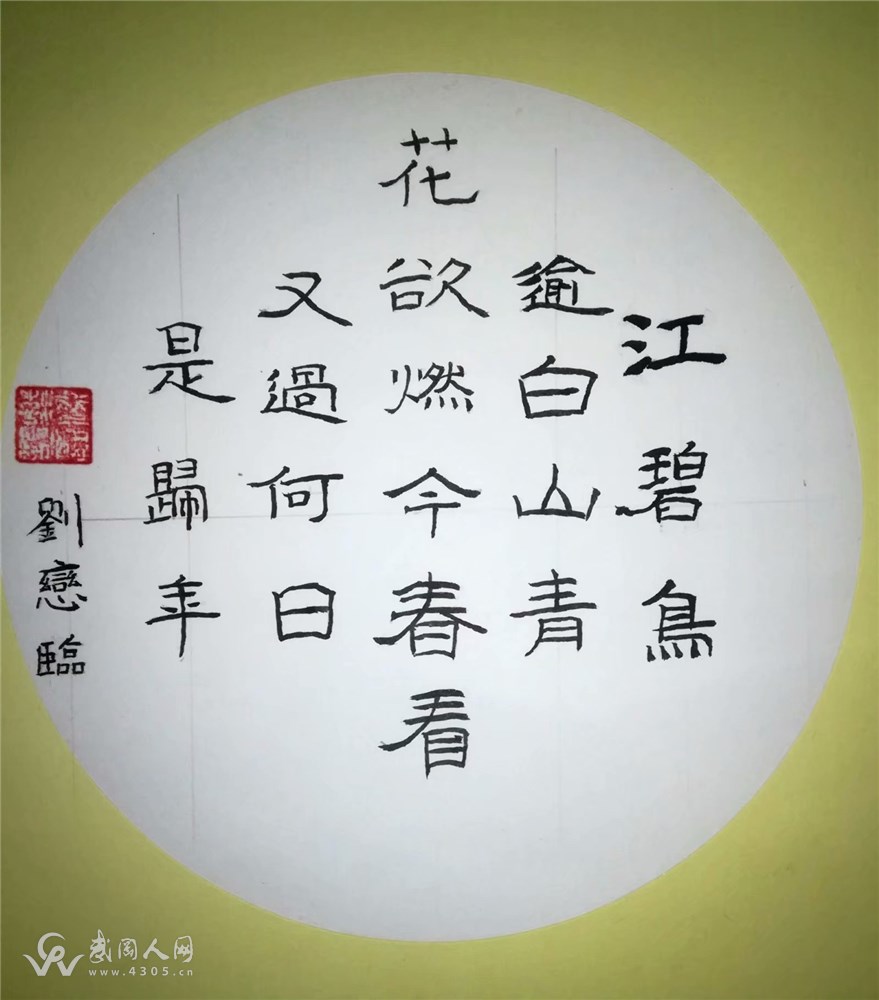 江碧鳥
逾白山青
花欲燃今春看
又過何日
是歸年
劉戀臨
武冈人网
www.4305.cn